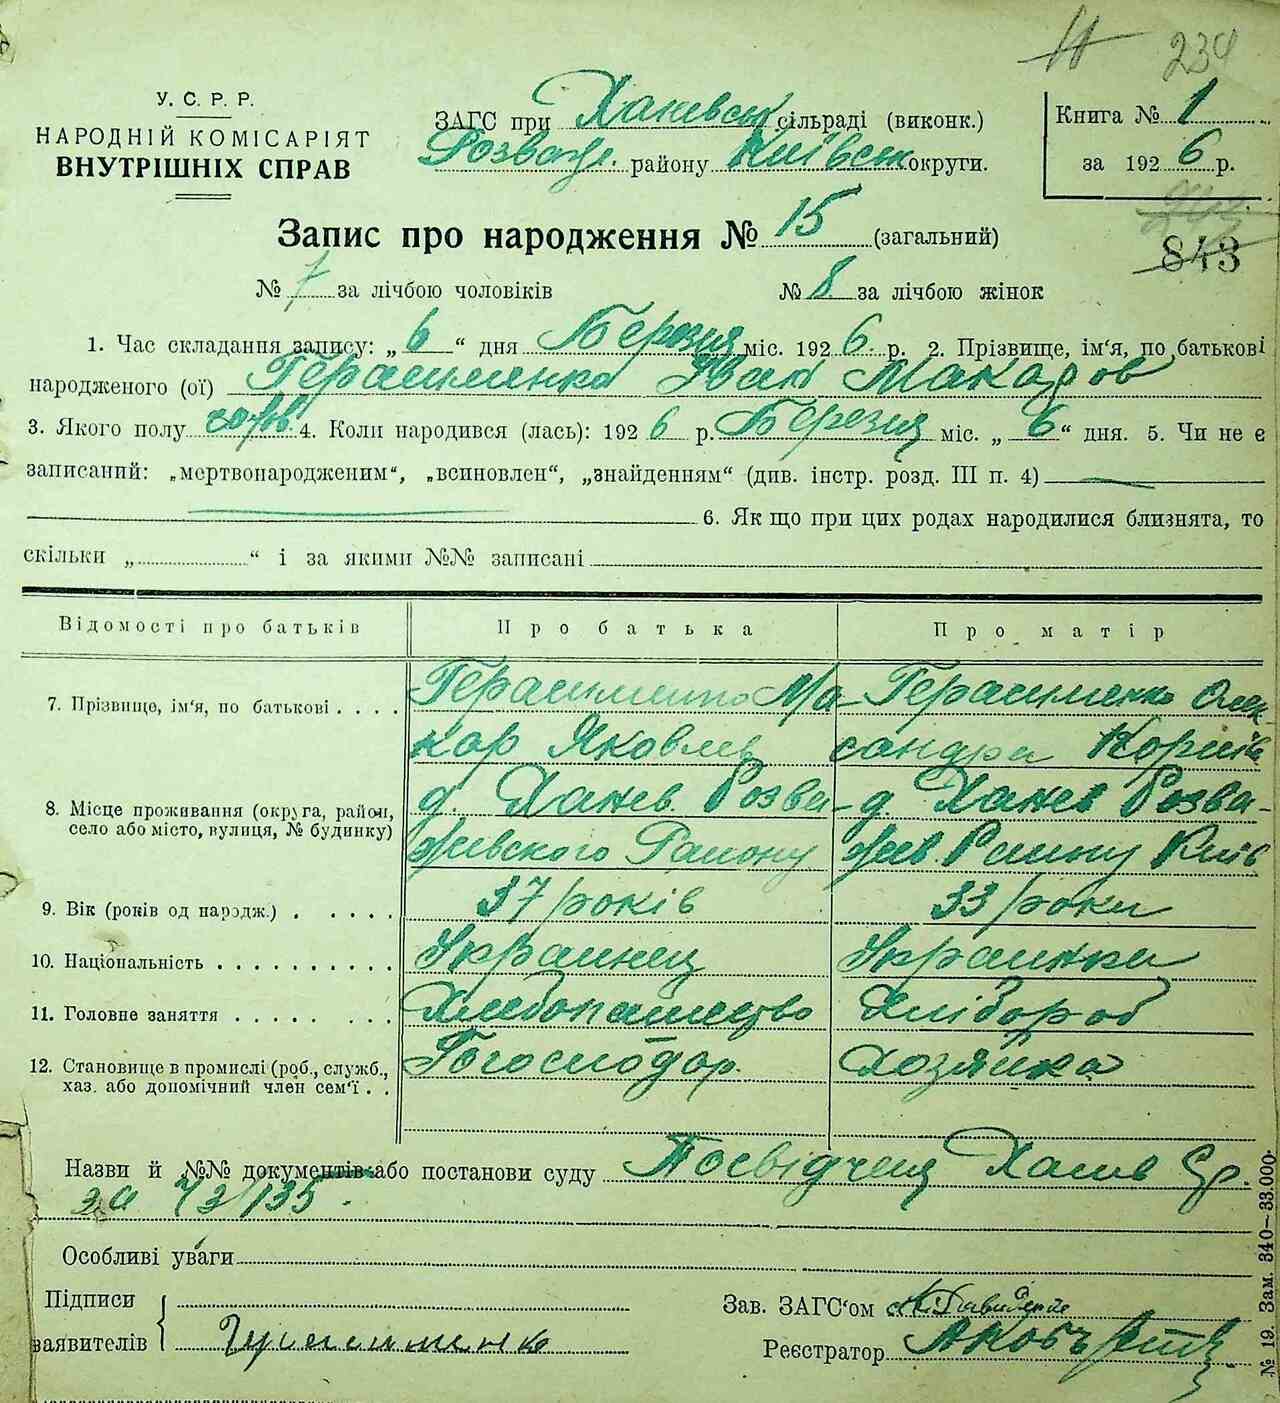 11 234
У. С. Р. Р.
НАРОДНІЙ КОМІСАРІЯТ
ВНУТРІШНІХ СПРАВ
ЗАГС при Ханевськ сільраді (виконк.)
Розваж. району Київськ округи.
Книга № 1
за 1926 р.
Запис про народження № 15 (загальний)
843
№ 7 за лічбою чоловіків № 8 за лічбою жінок
1. Час складання запису: „6“ дня Березня міс. 1926 р. 2. Прізвище, ім'я, по батькові
народженого (ої) Герасименко Іван Макаров
3. Якого полу 4. Коли народився (лась): 1926 р. Березня міс. „6“ дня. 5. Чи не є
записаний: „мертвонародженим“, „всиновлен“, „знайденням“ (див. інстр. розд. III п. 4)
6. Як що при цих родах народилися близнята, то
скільки „ “ і за якими №№ записані
Відомості про батьків Про батька Про матір
7. Прізвище, ім'я, по батькові Герасименко Ма- Герасименко Олек
кар Яковлев сандра Корніїв
8. Місце проживання (округа, район, село або місто, вулиця, № будинку) д. Ханев. Розва- д. Ханев Розва-
жевского Району жев. Району Київ
9. Вік (років од народж.) 37 років 33 роки
10. Національність Украинец Украинка
11. Головне заняття Хлебопашество Хлібороб
12. Становище в промислі (роб., служб., хаз. або допомічний член сем'ї Хозяйка
Назви й №№ документів або постанови суду Посвідченя Ханев
за
Особливі уваги
Підписи
заявителів Герасименко
Зав. ЗАГС'ом
Реєстратор
№ 19. Зам. 340–33.000